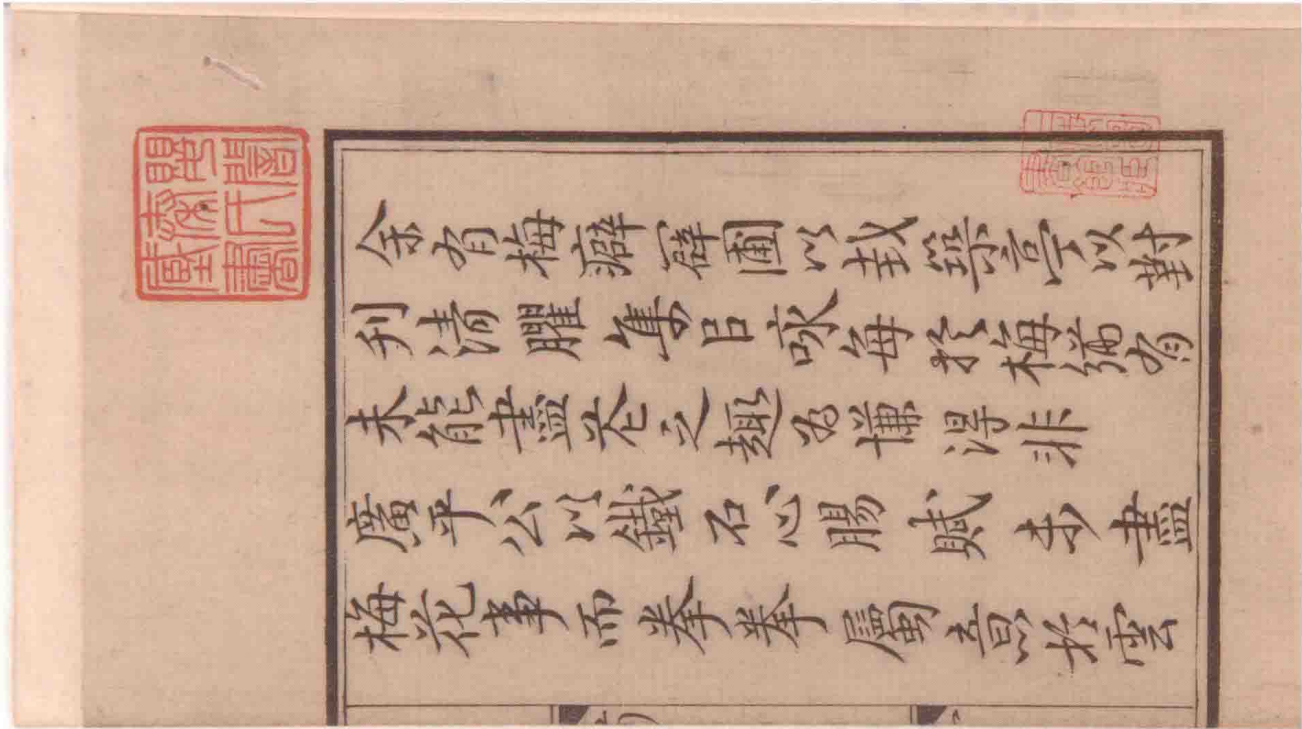 余有梅癖辟圃以栽築亭以對
刊清臞集㠯咏每於梅猶有
未能盡花之趣為慊得非
廣平公以鐵石心腸賦未盡
梅花事而拳拳屬意於雲